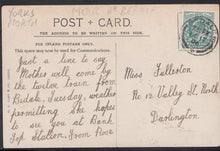 YORKS
NORTH
POST + CARD.
THE ADDRESS TO BE WRITTEN ON THIS SIDE.
FOR INLAND POSTAGE ONLY.
This space may now be used for Communication.
Just a line to say
Mother will come by
the twelve train from
Bedale, Tuesday, weather
permitting. She hopes
to see you at Bank
Top Station, from Rose
Miss Fullerton
No 12 Valley St. North
Darlington